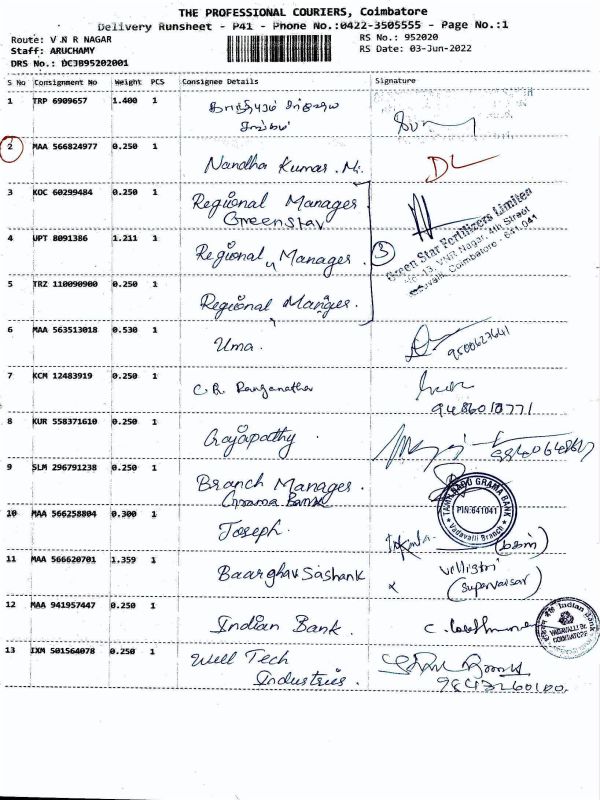 THE PROFESSIONAL COURIERS, Coimbatore
Delivery Runsheet - P41 - Phone No.:0422-3505555 - Page No.:1
Route: V N R NAGAR RS No.: 952020
Staff: ARUCHAMY RS Date: 03-Jun-2022
DRS No.: DCJB95202001
S No Consignment No Weight PCS Consignee Details Signature
1 TRP 6909657 1.400 1
2 MAA 566824977 0.250 1 Nandha Kumar. M. DL
3 KOC 60299484 0.250 1 Regional Manager
Greenstar
4 UPT 8091386 1.211 1 Regional Manager. 3
Green Star Fertilizers Limited
VNR Nagar, 4th Street
Vadavalli, Coimbatore - 641 041
5 TRZ 110090900 0.250 1 Regional Manger.
6 MAA 563513018 0.530 1 Uma. 9500627641
7 KCM 12483919 0.250 1 C.R. Ranganathan
8 KUR 558371610 0.250 1 Gayapathy
9 SLM 296791238 0.250 1 Branch Manager.
Grama Bank
TAMIL NADU GRAMA BANK
PIN:641041
Vadavalli Branch
10 MAA 566258804 0.300 1 Joseph.
11 MAA 566620701 1.359 1 Baarghav Sashank
(Supervaisar)
12 MAA 941957447 0.250 1 Indian Bank.
Indian Bank
COIMBATORE
13 IXM 501564078 0.250 1 Well Tech
Industries.